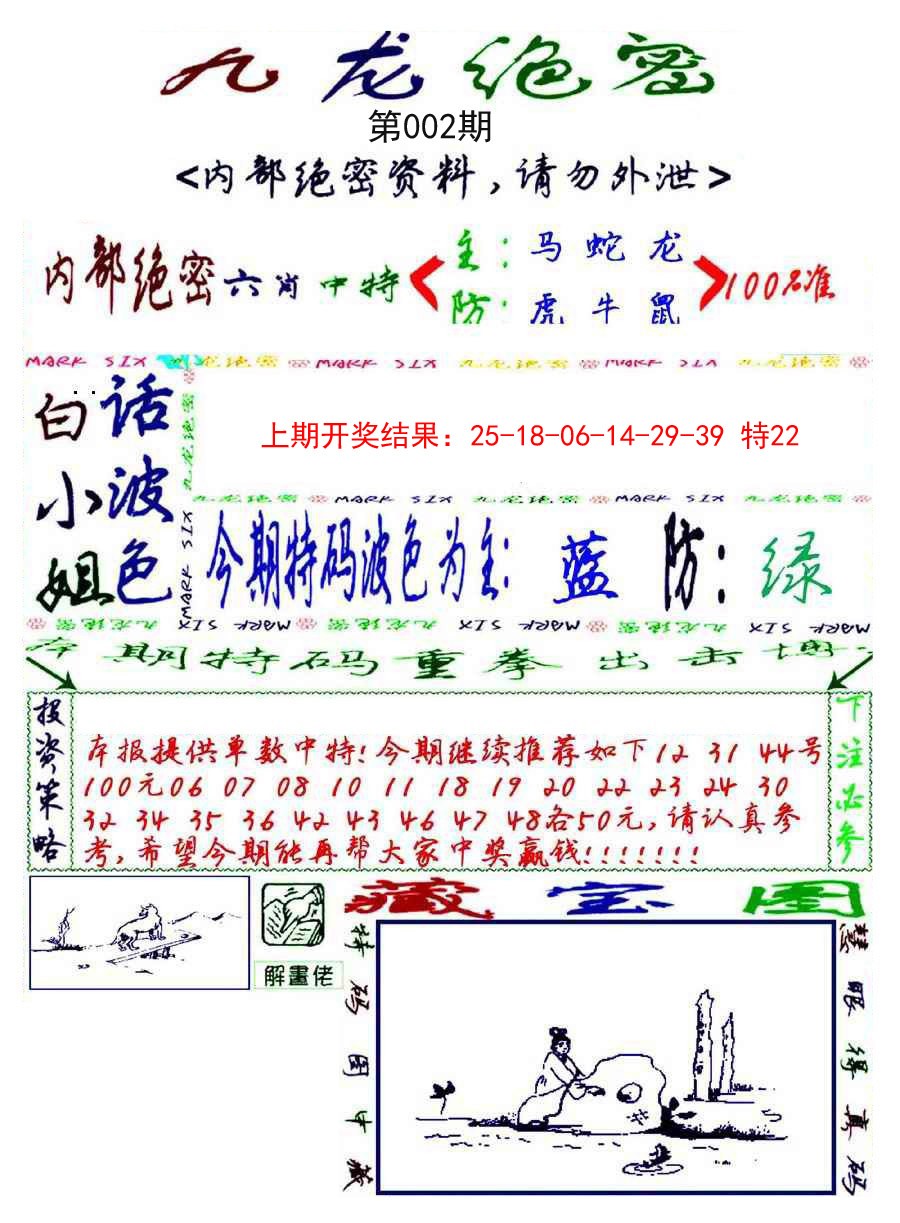 九龙绝密
第002期
<内部绝密资料,请勿外泄>
内部绝密六肖中特
主:马蛇龙
防:虎牛鼠
100%准
MARK SIX 九龙绝密 MARK SIX 九龙绝密 MARK SIX 九龙绝密
九龙绝密 MARK SIX
白话
小波
姐色
上期开奖结果: 25-18-06-14-29-39 特22
九龙绝密 MARK SIX 九龙绝密 MARK SIX 九龙绝密
今期特码波色为主: 蓝 防: 绿
九龙绝密 MARK SIX 九龙绝密 MARK SIX 九龙绝密 MARK SIX
本期特码重拳出击
投资策略
本报提供单数中特!今期继续推荐如下12 31 44号
100元06 07 08 10 11 18 19 20 22 23 24 30
32 34 35 36 42 43 46 47 48各50元,请认真参
考,希望今期能再帮大家中奖赢钱!!!!!!!
下注必参
解畫佬
藏宝图
特码图中藏
慧眼得真码